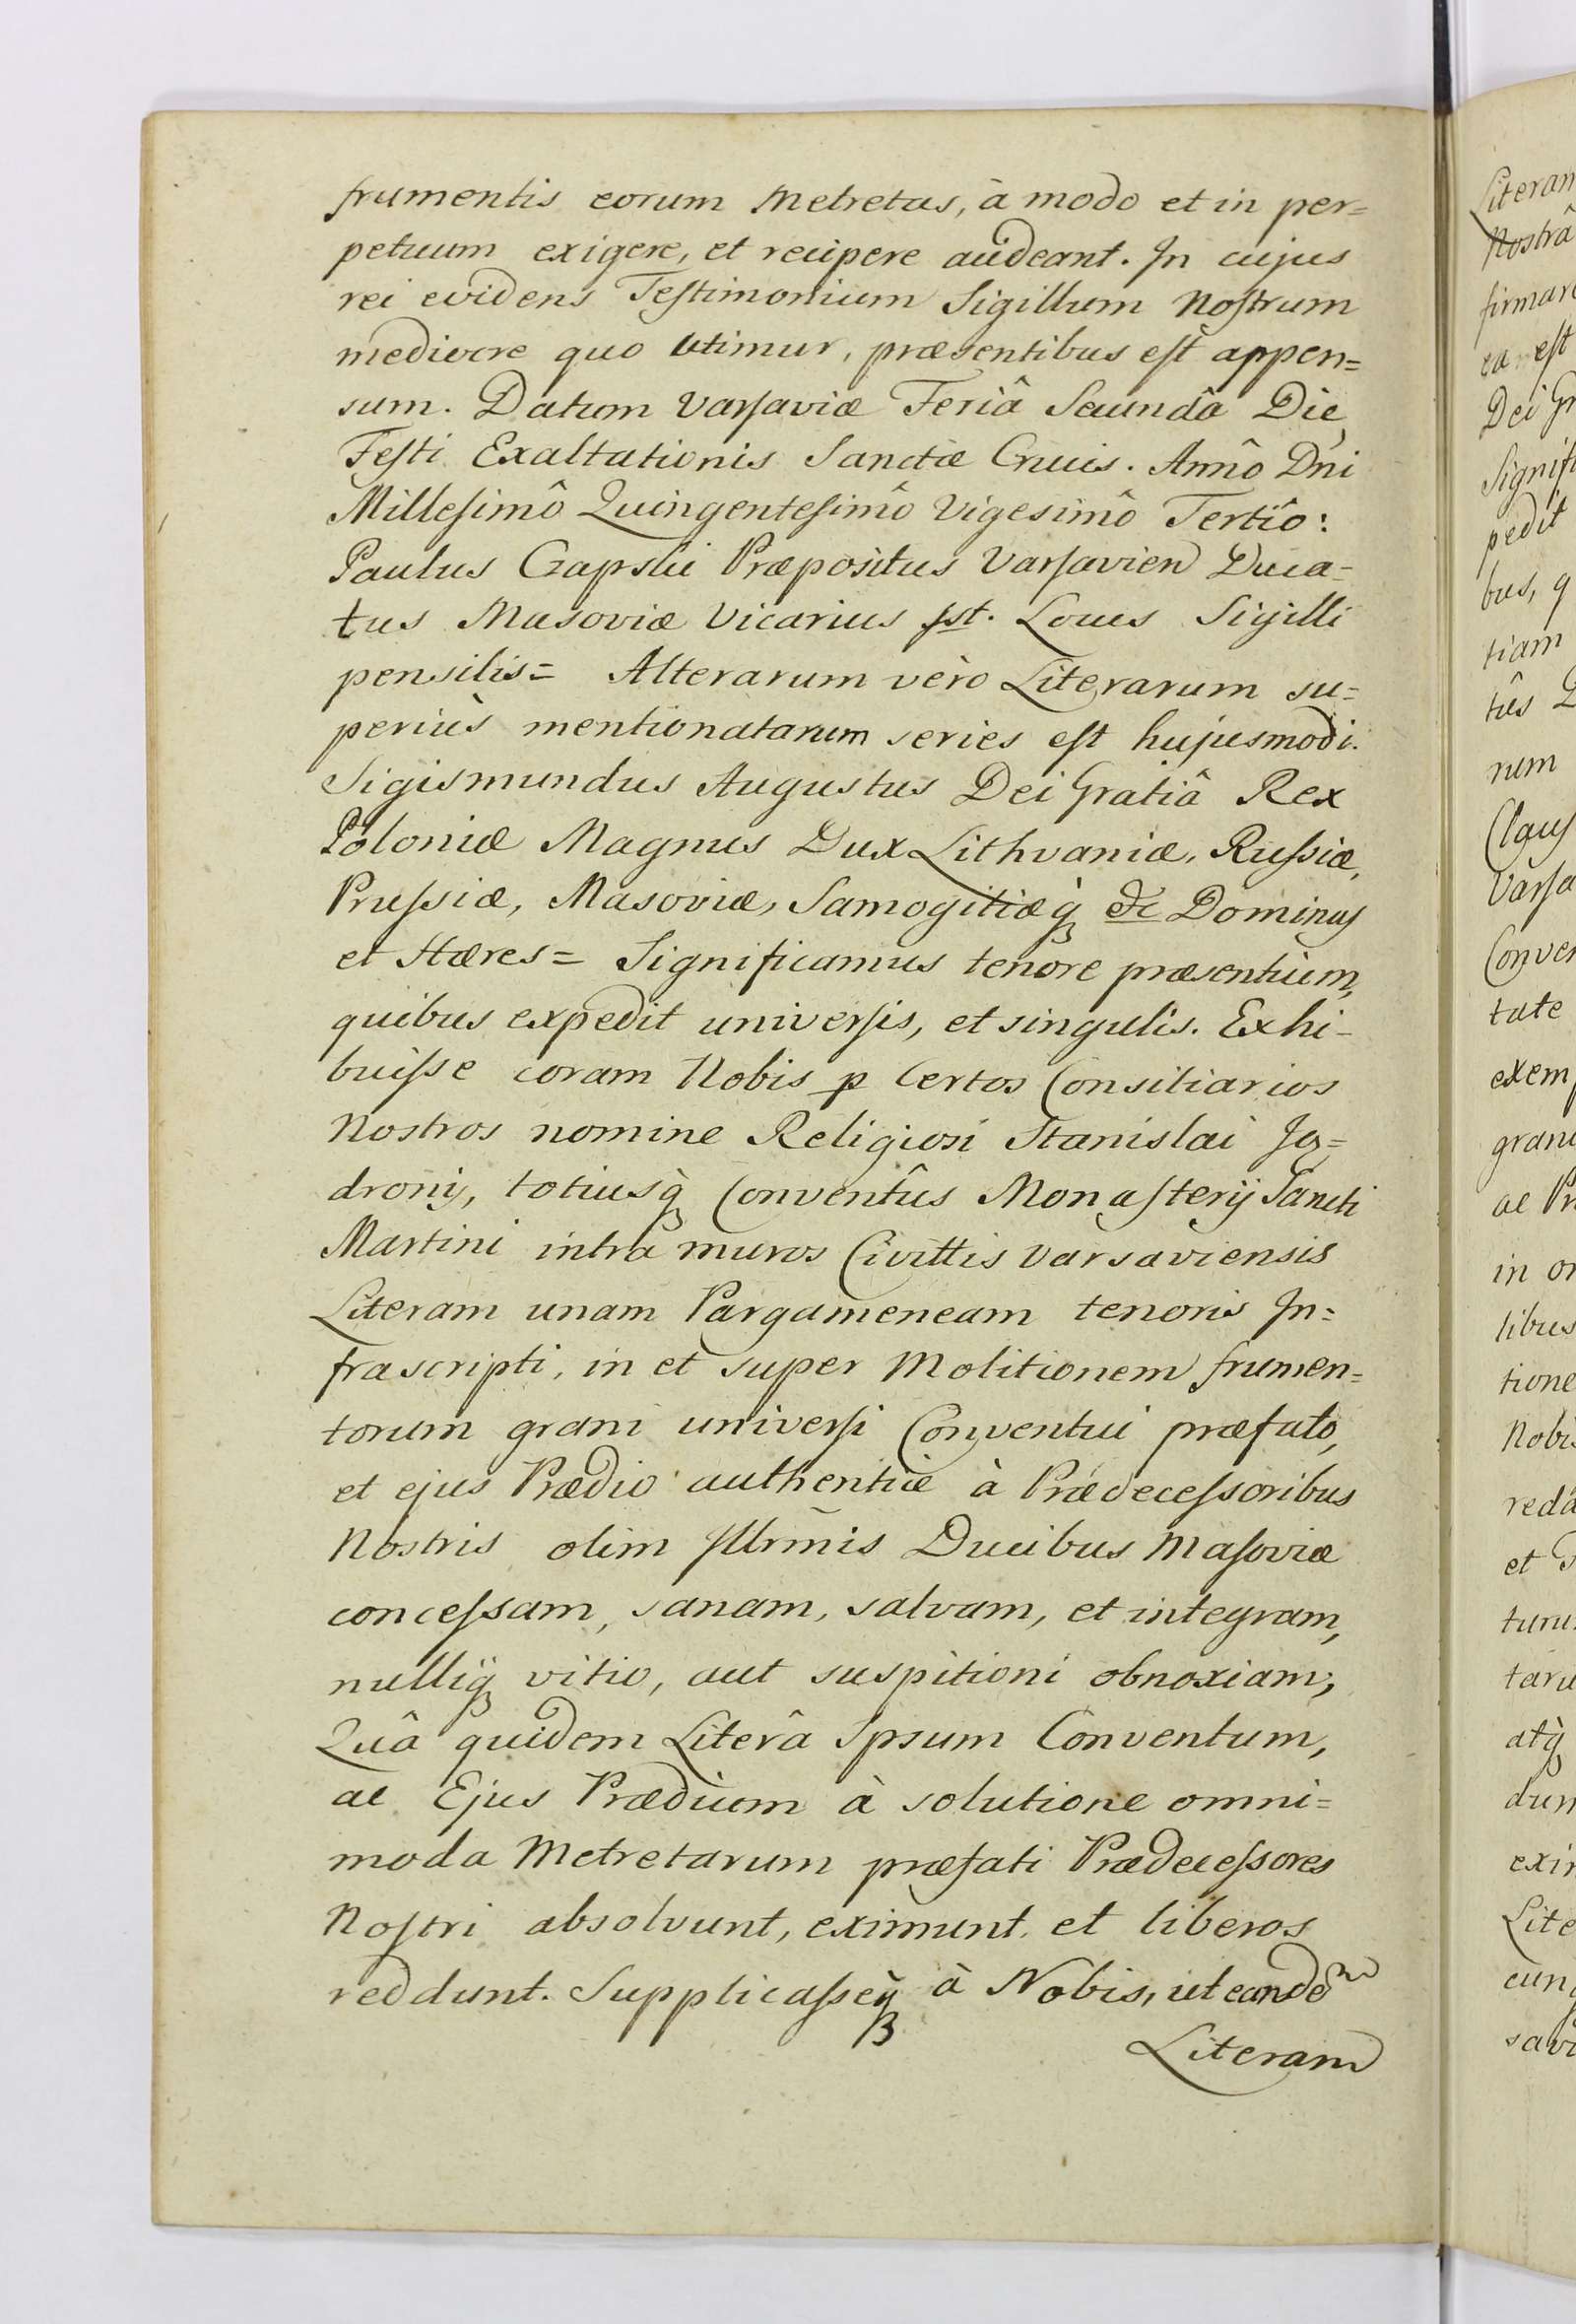 frumentis eorum Metretas, à modo et in per=
petuum exigere, et recipere audeant. In cujus
rei evidens Teſtimonium Sigillum Noſtrum
mediocre quo utimur, præsentibus eſt appen=
sum. Datum Varſaviæ Feriâ Secundâ Die
Feſti Exaltationis Sanctæ Crucis. Annô Dni
Milleſimô Quingenteſimô Vigesimô Tertiô:
Paulus Czapski Præpositus Varſavien Duca=
tus Masoviæ Vicarius sst. Locus Sigilli
pensilis= Alterarum vèro Literarum su=
periùs mentionatarum series eſt hujusmodi.
Sigismundus Augustus Dei Gratiâ Rex
Poloniæ Magnus Dux Lithvaniæ, Ruſsiæ,
Pruſsiæ, Masoviæ, Samogitiæq̀ &c Dominus
et Hæres= Significamus tenore præsentium,
quibus expedit univerſis, et singulis. Exhi=
buiſse coram Nobis p Certos Consiliarios
Nostros nomine Religiosi Stanislai Ja=
dronij, totiusq̀ Conventûs Monaſterij Sancti
Martini intra muros Civittis Varsaviensis
Literam unam Pargameneam tenoris In=
frascripti, in et super Molitionem frumen=
torum grani univerſi Conventui præfato,
et ejus Prædio authenticè à Prædeceſsoribus
Nostris olim Illrmis Ducibus Maſoviæ
conceſsam, sanam, salvam, et integram,
nulliq̀ vitio, aut suspitioni obnoxiam,
Quâ quidem Literâ Ipsum Conventum,
ac Ejus Prædium à solutione omni=
moda Metretarum præfati Prædeceſsores
Noſtri absolvunt, eximunt, et liberos
reddunt. Supplicaſseq̀ à Nobis, ut eandẽ
Literam
Literam
Nostrâ
firmare
ea eſt
Dei Gr
Signifi
pedit
bus, q
tiam
tûs D
num
Clauſ
Varſa
Conven
tate
exemp
grani
ac Pr
in om
libus
tione
Nobis
redd
et
turu
taru
atq̀
dum
exim
Lite
cunq
savi